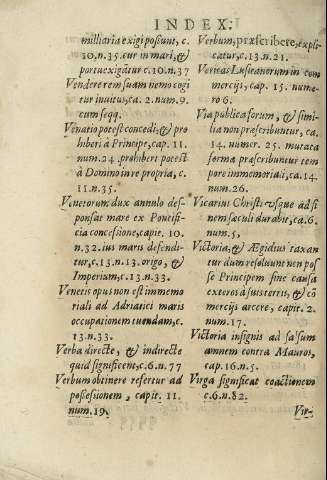 INDEX.
milliaria exigi possunt, c.
10.n.35. cur in mari, &
portu exigātur c.10.n.37
Vendere rem suam nemo cogi
tur invitus, ca. 2. num. 9.
cum seqq.
Venatio potest concedi, & pro
hiberi à Principe, cap. 11.
num. 24. prohiberi potest
à Domino in re propria, c.
11. n. 35.
Venetorum dux annulo des-
ponsat mare ex Pontifi-
cia concesione, capit. 10.
n.32. ius maris defendi-
tur, c.13.n.13. origo, &
Imperium, c.13. n.33.
Venetis opus non est immemo
riali ad Adriatici maris
occupationem tuendam, c.
13. n. 33.
Verba directe, & indirecte
quid significent, c.6. n. 77
Verbum obtinere refertur ad
possesionem, capit. 11.
num. 19.
Verbum, præscribere, expli-
catur, c. 13. n. 21.
Veritas Lusitanorum in com
mercijs, cap. 15. nume-
ro 6.
Via publica forum, & simi-
lia non præscribuntur, ca.
14. numer. 25. mutata
forma præscribuntur tem
pore immemoriali, ca. 14.
num. 26.
Vicarius Christi usque ad fi-
nem sæculi durabit, ca. 6.
num. 5,
Victoria, & Ægidius taxan
tur dum resoluunt non pos
se Principem sine causa
exteros à suis terris, & cō
mercijs arcere, capit. 2.
num. 17.
Victoria insignis ad salsum
amnem contra Mauros,
cap. 16. n. 5.
Virga significat coactionem
c.6. n. 82.
Vir-